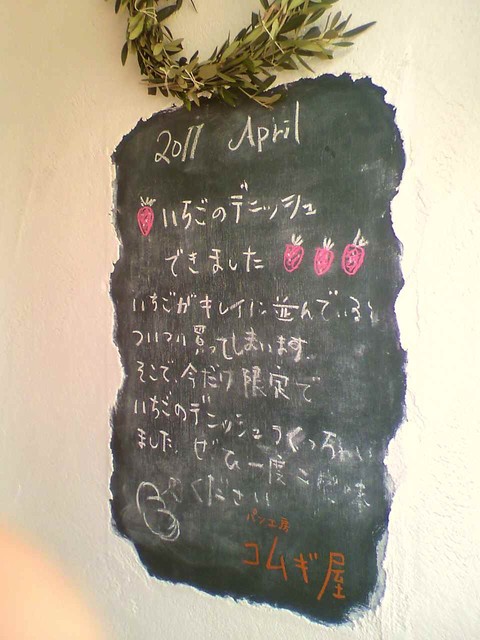 2011 April
いちごのデニッシュ
できました
いちごがキレイに並んでいると
ついつい買ってしまいます。
そこで、今だけ限定で
いちごのデニッシュつくっちゃい
ました。ぜひ一度ご賞味
ください
パン工房
コムギ屋